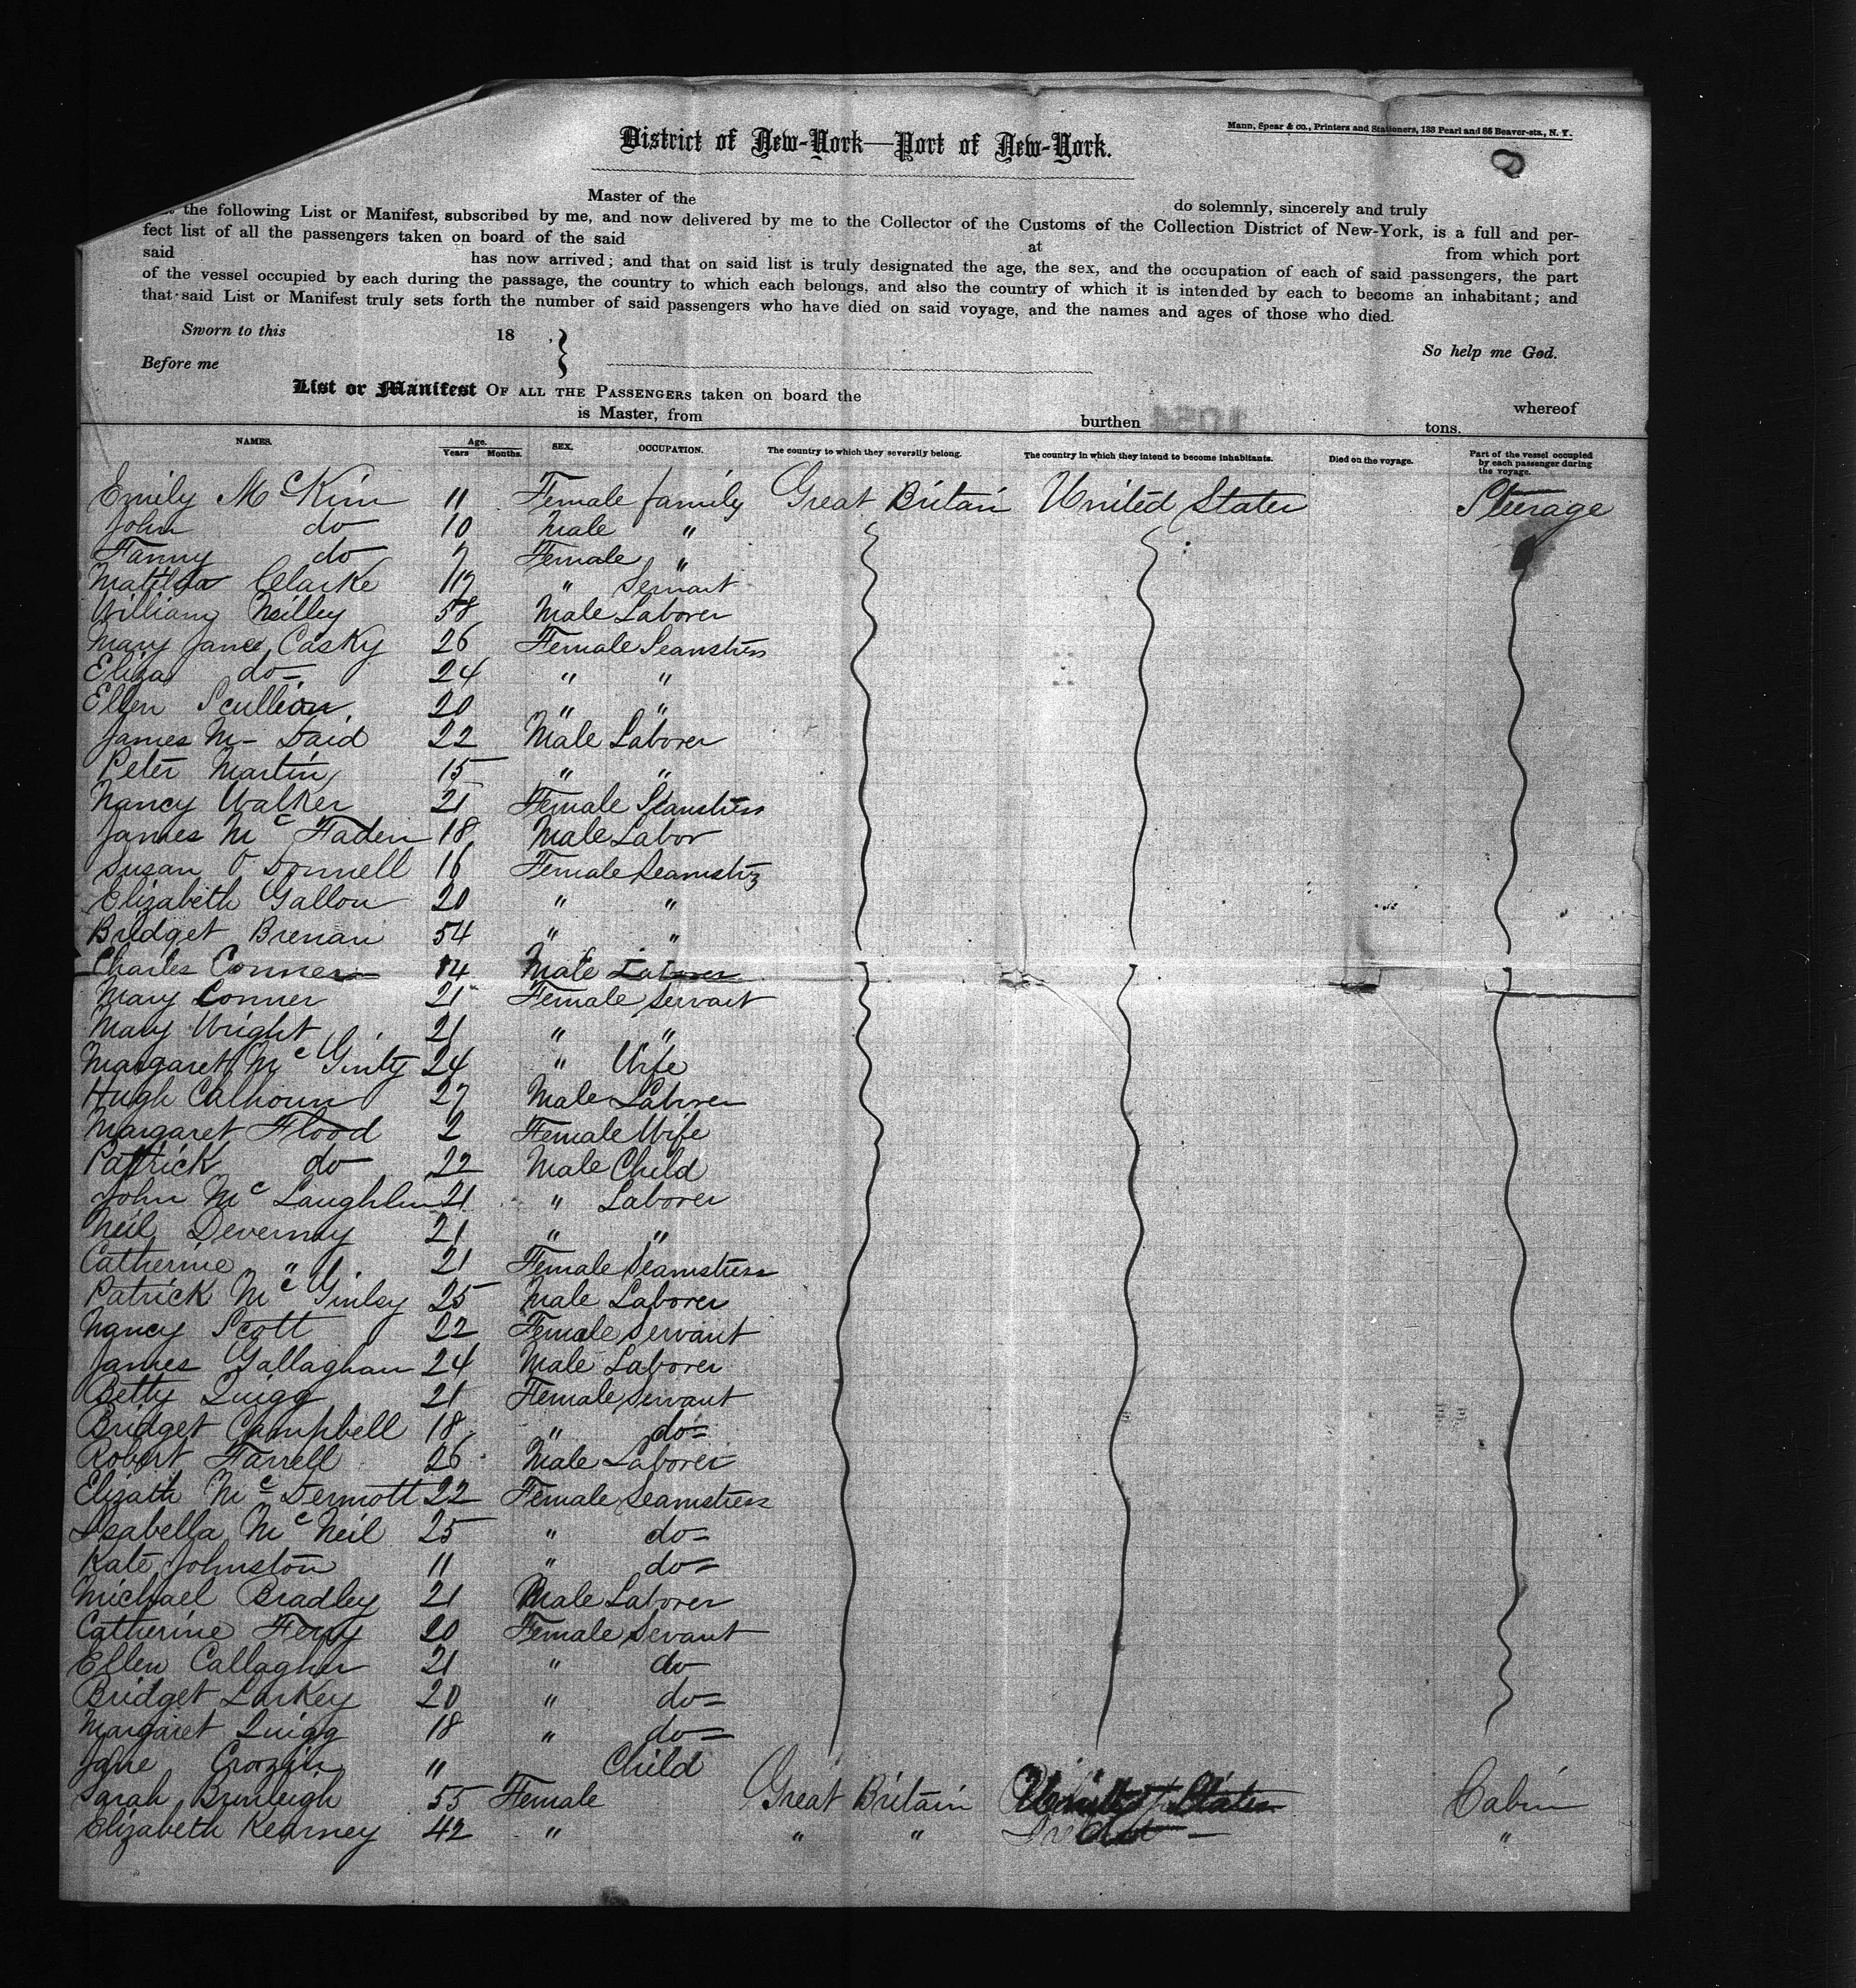 Mann, Spear & co., Printers and Stationers, 133 Pearl and 86 Beaver-sts., N. Y.
District of New-York—Port of New-York.
Master of the do solemnly, sincerely and truly
the following List or Manifest, subscribed by me, and now delivered by me to the Collector of the Customs of the Collection District of New-York, is a full and per-
fect list of all the passengers taken on board of the said at from which port
said has now arrived; and that on said list is truly designated the age, the sex, and the occupation of each of said passengers, the part
of the vessel occupied by each during the passage, the country to which each belongs, and also the country of which it is intended by each to become an inhabitant; and
that said List or Manifest truly sets forth the number of said passengers who have died on said voyage, and the names and ages of those who died.
Sworn to this 18
So help me God.
Before me
List or Manifest OF ALL THE PASSENGERS taken on board the whereof
is Master, from burthen tons.
NAMES. Age. Years Months. SEX. OCCUPATION. The country to which they severally belong. The country in which they intend to become inhabitants. Died on the voyage. Part of the vessel occupied by each passenger during the voyage.
Emily McKim 11 Female family Great Britain United States Steerage
John do 10 Male "
Fanny do 7 Female "
Matilda Clarke 17 " Servant
William Neilley 58 Male Laborer
Mary Jane Casky 26 Female Seamstress
Eliza do 24 " "
Ellen Scullion 20 " "
James Mc Daid 22 Male Laborer
Peter Martin 15 " "
Nancy Walker 21 Female Seamstress
James Mc Faden 18 Male Labor
Susan O Donnell 16 Female Seamstrs
Elizabeth Gallon 20 " "
Bridget Brenan 54 " "
Charles Conner 14 Male Laborer
Mary Conner 21 Female Servant
Mary Wright 21 " "
Margaret Mc Ginty 24 " Wife
Hugh Calhoun 27 Male Laborer
Margaret Flood 2 Female Wife
Patrick do 22 Male Child
John Mc Laughlin 21 " Laborer
Neil Deverney 21 " "
Catherine " 21 Female Seamstress
Patrick Mc Ginley 25 Male Laborer
Nancy Scott 22 Female Servant
James Gallaghan 24 Male Laborer
Betty Quigg 21 Female Servant
Bridget Campbell 18 " do
Robert Farrell 26 Male Laborer
Elizath Mc Dermott 22 Female Seamstress
Isabella Mc Neil 25 " do
Kate Johnston 11 " do
Michael Bradley 21 Male Laborer
Catherine Ferry 20 Female Sevant
Ellen Callagher 21 " do
Bridget Larkey 20 " do
Margaret Quigg 18 " do
Jane Crozier " Child
Sarah Burleigh 55 Female Great Britain United States Cabin
Elizabeth Kearney 42 " " " "